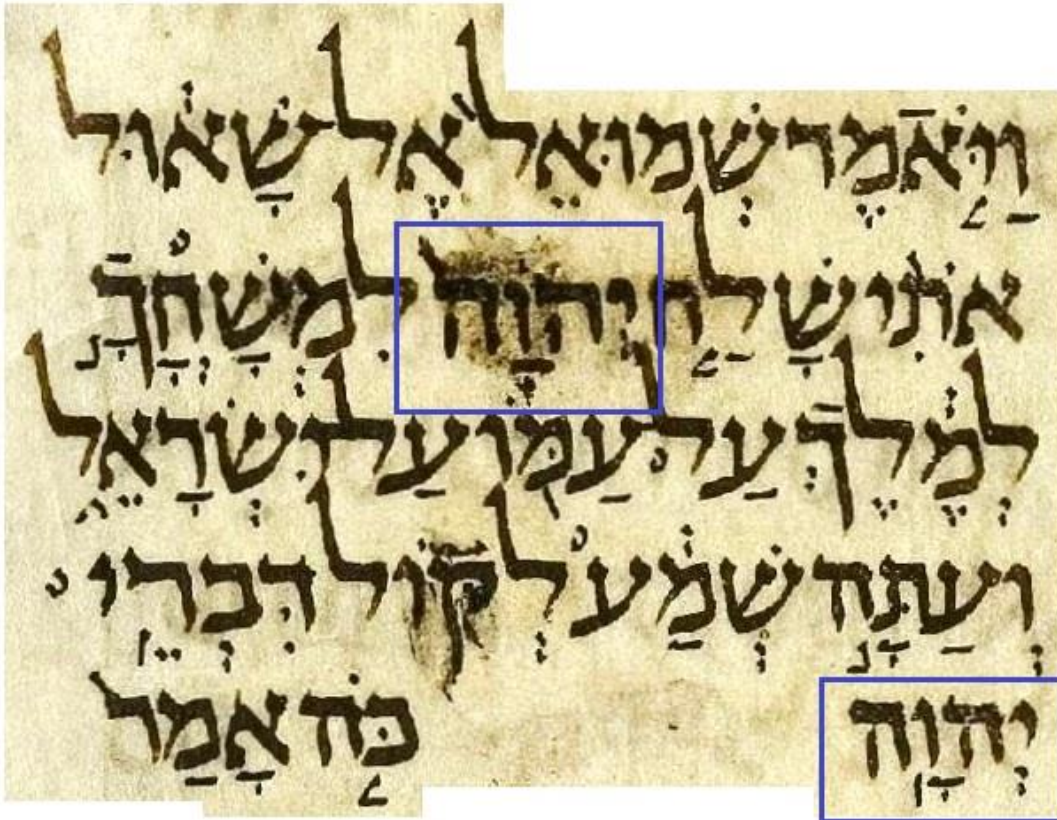 וַיֹּאמֶר שְׁמוּאֵל אֶל שָׁאוּל
אֹתִי שָׁלַח יְהֹוָה לִמְשָׁחֳךָ
לְמֶלֶךְ עַל עַמּוֹ עַל יִשְׂרָאֵל
וְעַתָּה שְׁמַע לְקוֹל דִּבְרֵי
יְהוָה כֹּה אָמַר